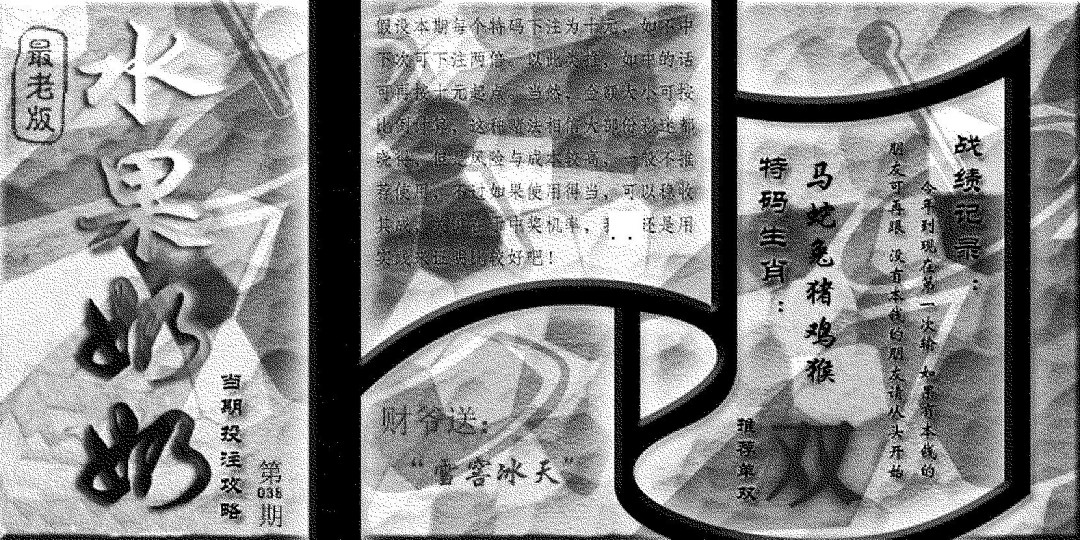 最老版
水果奶奶
当期投注攻略
第038期
假设本期每个特码下注为十元，如不中
下次可下注两倍，以此类推，如中的话
可再按十元起点。当然，金额大小可按
比例付增，这种说法相信大部份彩迷都
晓得，但是风险与成本较高，一般不推
荐使用，不过如果使用得当，可以稳收
中奖机率，还是用
比较好吧！
财爷送：
“雪窖冰天”
战绩记录：
今年到现在第一次输 如果有本钱的
朋友可再跟 没有本钱的朋友请从头开始
特码生肖：
马蛇兔猪鸡猴
推荐单双
双